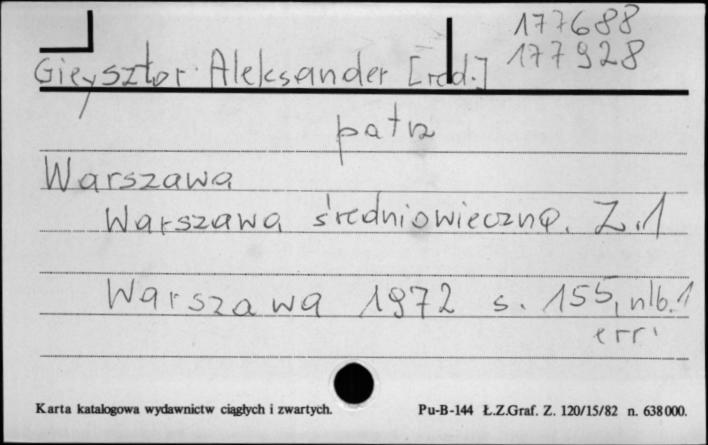 177688
177928
Gieysztor Aleksander [red.]
patrz
Warszawa
Warszawa średniowieczna. Z.1
Warszawa 1972 s. 155, nlb.1
err.
Karta katalogowa wydawnictw ciągłych i zwartych.
Pu-B-144 Ł.Z.Graf. Z. 120/15/82 n. 638000.